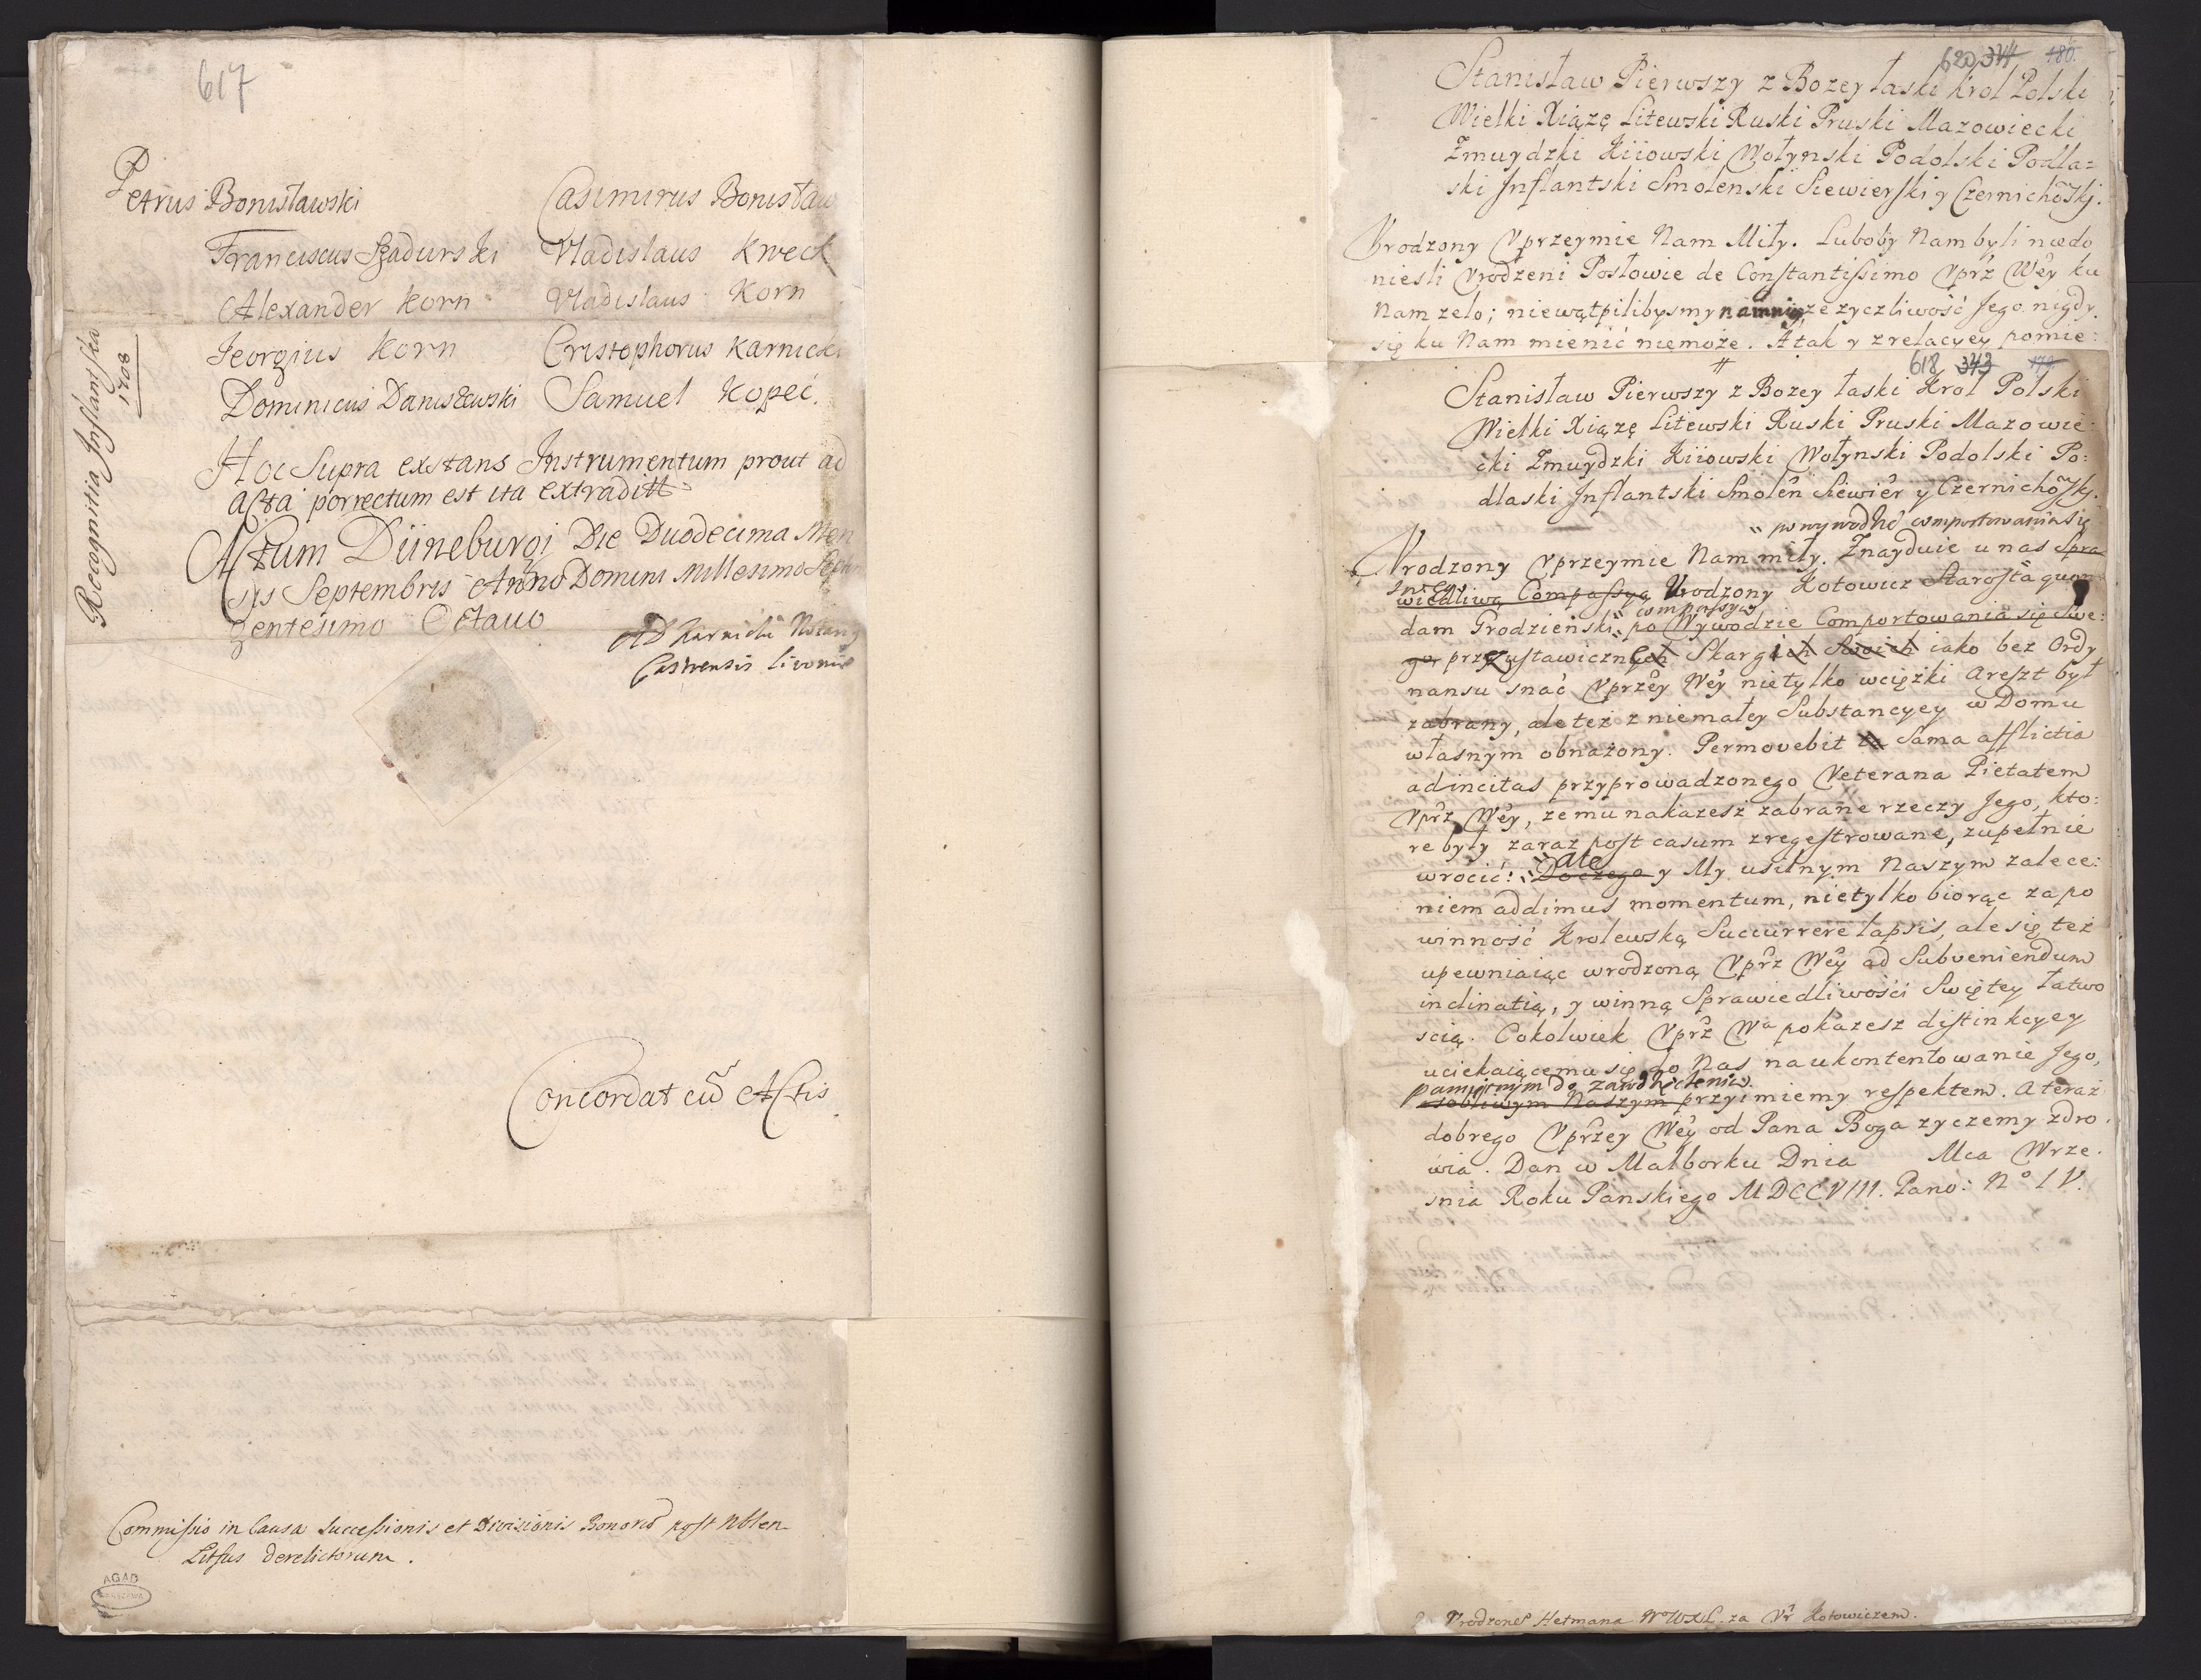 617
Petrus Bonisławski Casimirus Bonisław
Franciscus Szadurski Vladislaus Kweck
Alexander Korn Vladislaus Korn
Jeorgius Korn Cristophorus Karnicki
Dominicus Daniszewski Samuel Kopeć.
Hoc Supra exstans Instrumentum prout ad
Acta porrectum est ita extraditt
Actum Düneburgi Die Duodecima Men
sis Septembris Anno Domini Millesimo Septin
gentesimo Octavo
AD Karnicki Notarig
Castrensis Livonie
Recognitia Inflantska
1708
Concordat cũ Actis
Commissio in Causa Successionis et Divisionis Bonorũ post Nblen
Litfus derelictorum.
AGAD
WARSZAWA
620 344 180.
Stanisław Pierwszy z Bozey łaski Krol Polski
Wielki Xiązę Litewski Ruski Pruski Mazowiecki
Zmuydzki Kiiowski Wołynski Podolski Podla=
ski Inflantski Smolenski Siewierski y Czernichõskj.
Vrodzony Vprzeymie Nam Miły. Luboby Nam byli niedo
niesli Vrodzeni Posłowie de Constantissimo Vprz Wey ku
Nam zelo; niewątpilibysmy namniey ze zyczliwość Jego nigdy
się ku Nam mienić niemoże. A tak y z relacyey pomie:
618 343 179
Stanisław Pierwszy z Bozey łaski Krol Polski
Wielki Xiązę Litewski Ruski Pruski Mazowie:
cki Zmuydzki Kiiowski Wołynski Podolski Po:
dlaski Inflantski Smolen Siewier y Czernichõskj.
po wywodzie comportowania się
Vrodzony Vprzeymie Nam miły. Znayduie u nas Spra
wiedliwą Compassyą Urodzony Kotowicz Starosta quon
compassyą
dam Grodzieński po Wywodzie Comportowania się Swe:
go, przy ustawicznych Skargach Swoich iako bez Ordy
nansu snać Vprzey Wey nietylko wciężki Areszt był
zabrany, ale też z niemałey Substancyey w Domu
własnym obnażony. Permovebit ta Sama afflictia
ad incitas przyprowadzonego Veterana Pietatem
Vprz Wey, ze mu nakazesz zabrane rzeczy Jego, kto:
re były zaraz post casum zregestrowane, zupełnie
Ale
wrocić: Do czego y My usilnym Naszym zalece:
niem addimus momentum, nietylko biorąc za po
winność Krolewską Succurrere lapsis, ale się też
upewniaiąc wrodzoną Vprz Wey ad Subveniendum
inclinatią, y winną Sprawiedliwości Swiętey łatwo
scią. Cokolwiek Vprz Wa pokazesz distinkcyey
uciekaiącemu się do Nas na ukontentowanie Jego,
pamiętnym do zawdzięczenia
osobliwym Naszym przyimiemy respektem. A teraz
dobrego Vprzey Wey od Pana Boga zyczemy zdro
wia. Dan w Malborku Dnia Mca Wrze.
snia Roku Panskiego MDCCVIII. Pano: No IV.
Vrodzonego Hetmana Wo WXL. za Ur Kotowiczem.